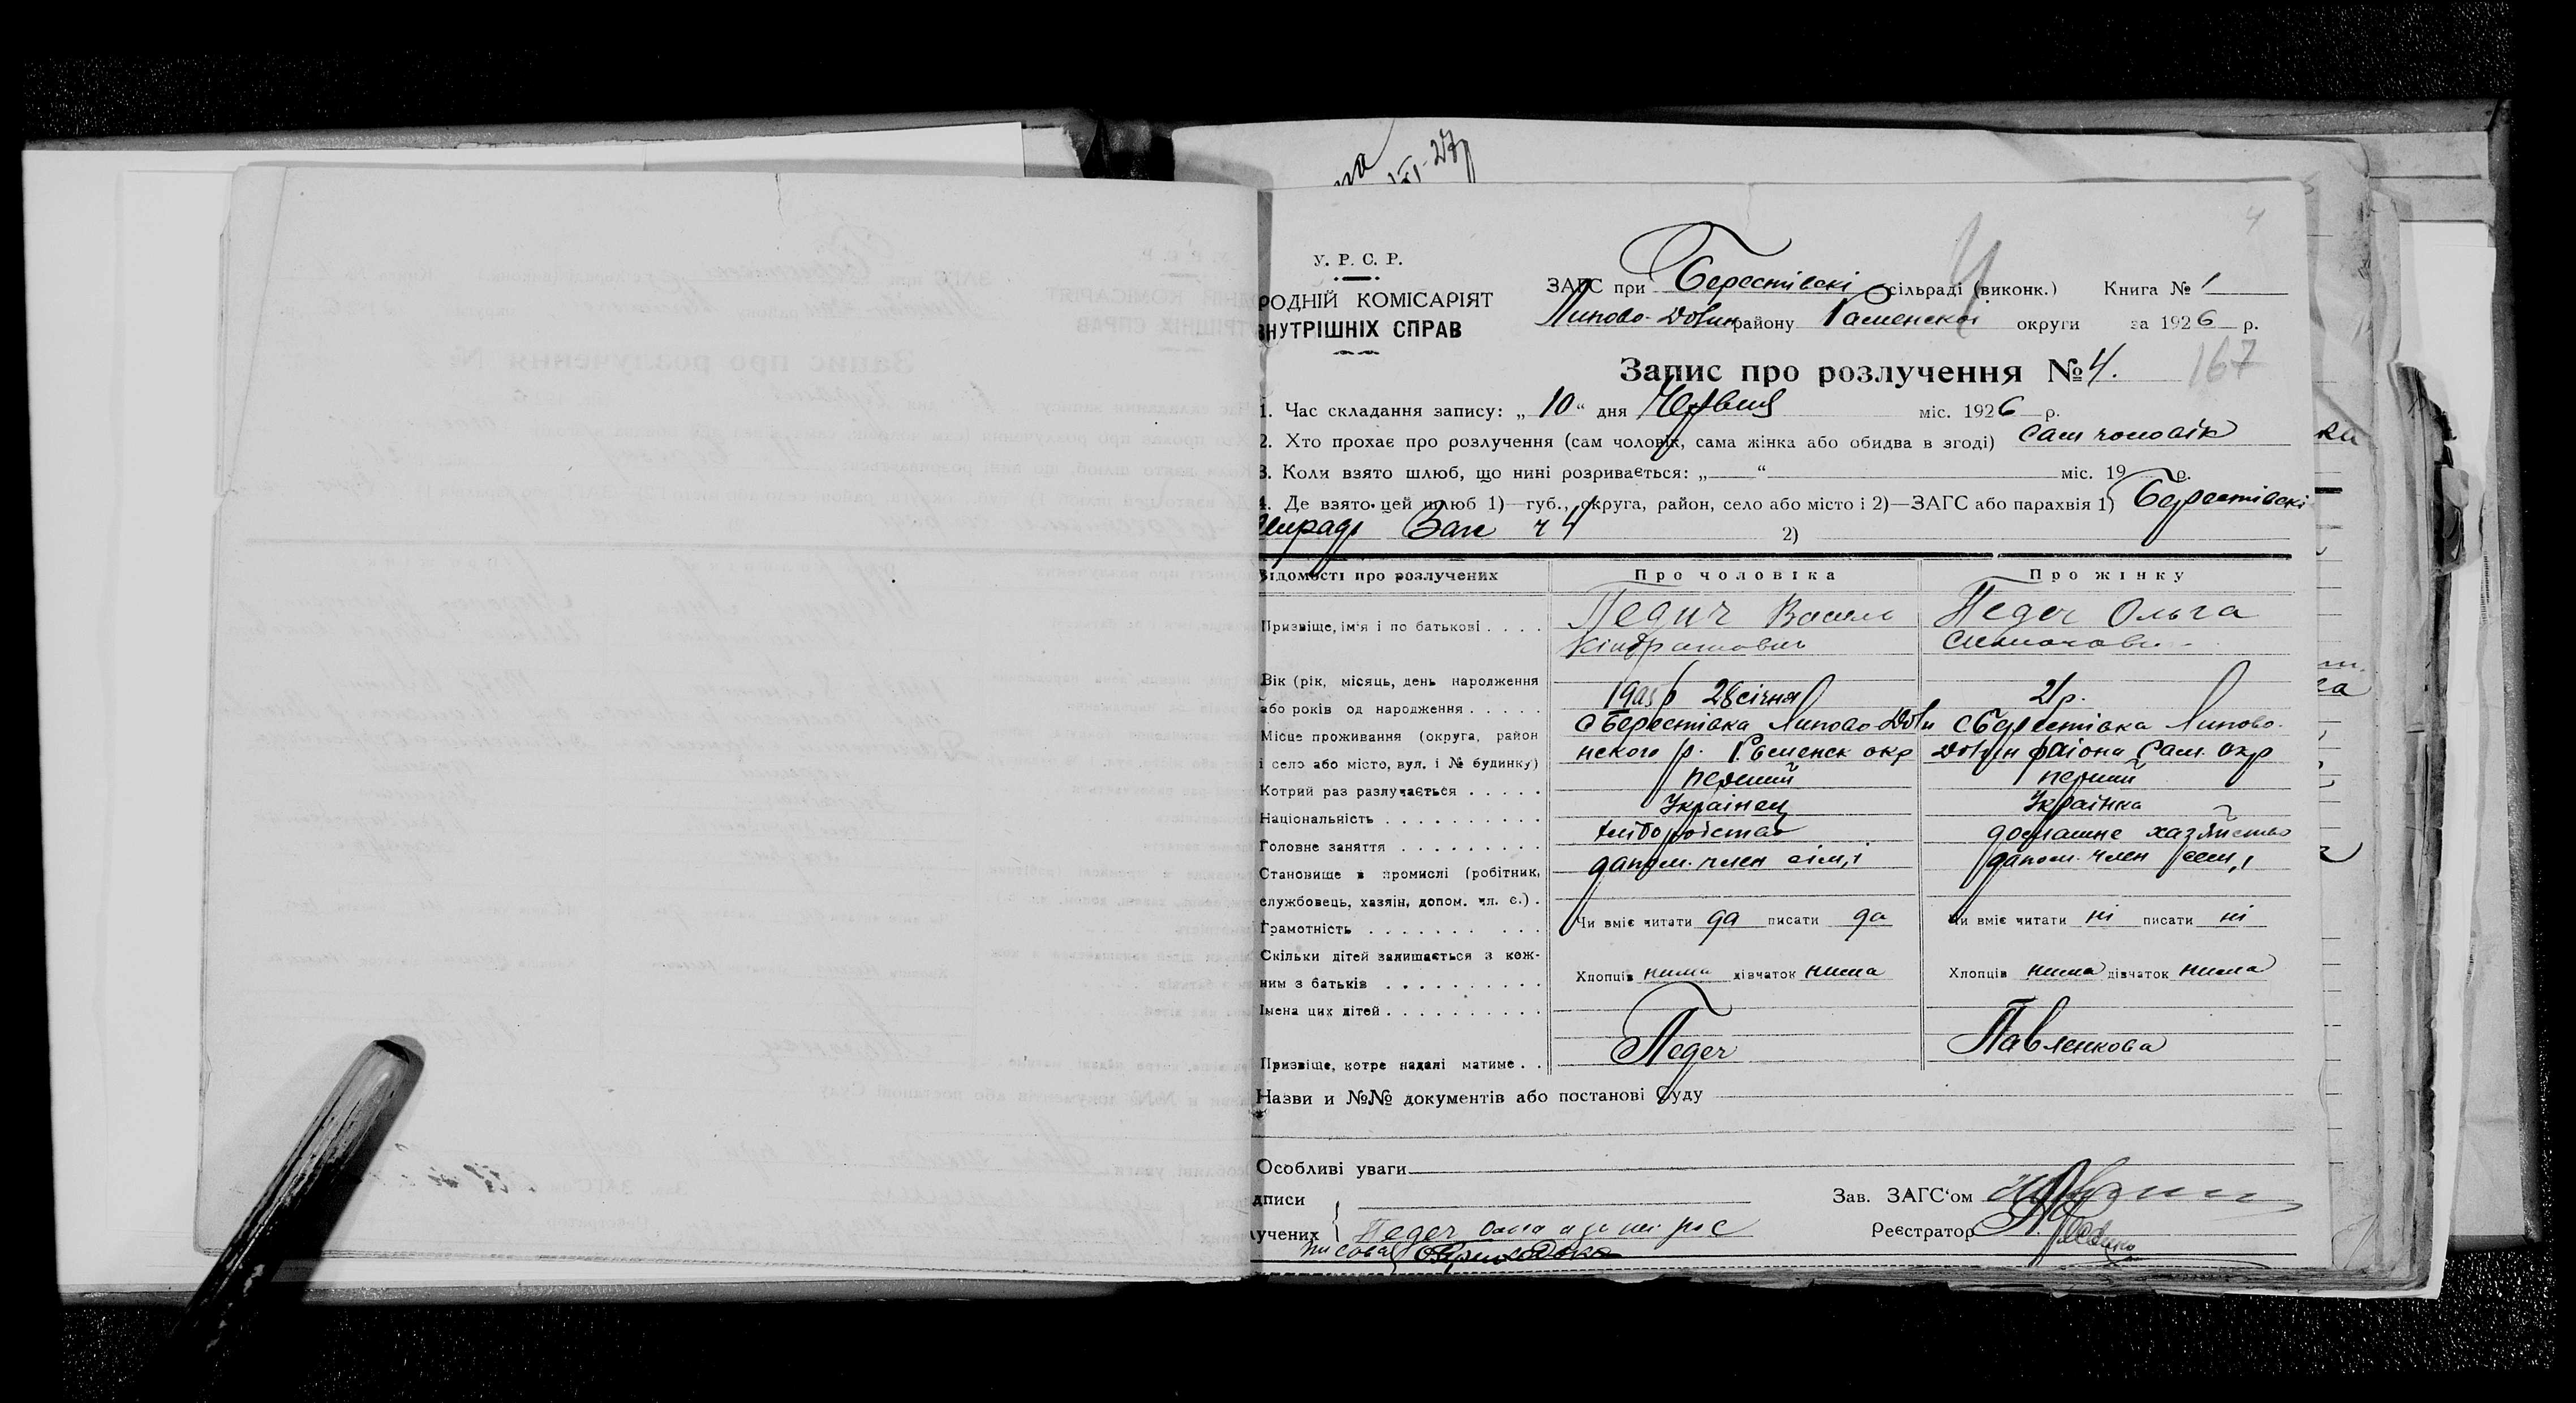 У. Р. С. Р.
РОДНІЙ КОМІСАРІЯТ
ВНУТРІШНІХ СПРАВ
4
ЗАГС при Берестівскі сільраді (виконк.) Книга № 1
Липово-Долин району Раменскої округи за 1926 р.
Запис про розлучення № 4. 167
1. Час складання запису: „10“ дня Червня міс. 1926 р.
2. Хто прохає про розлучення (сам чоловік, сама жінка або обидва в згоді) сам чоловік
3. Коли взято шлюб, що нині розривається: „ “ міс. 19 р.
4. Де взято цей шлюб 1)—губ., округа, район, село або місто і 2)—ЗАГС або парахвія 1) Берестівскі
сильраді Загс ч 4 2)
Відомості про розлучених Про чоловіка Про жінку
Призвіще, ім'я і по батькові . . . . Педич Васил Педеч Ольга
Кіндратович
Вік (рік, місяць, день народження
або років од народження . . . . . 1905 р 28 січня 21 р.
Місце проживання (округа, район с Берестівка Липово-Доли с Берестівка Липово-
і село або місто, вул. і № будинку) нского р. Роменск окр Долин району Рам. окр
Котрий раз разлучається . . . . . перший перший
Національність . . . . . . . . . . Українец Українка
Головне заняття . . . . . . . . . хліборобство домашне хазяйство
Становище в промислі (робітник, дапом. член сім,і дапом. член сем,і
службовець, хазяін, допом. чл. с.) .
Грамотність . . . . . . . . . . Чи вміє читати да писати да Чи вміє читати ні писати ні
Скільки дітей залишається з кож-
ним з батьків . . . . . . . . . . Хлопців нима дівчаток нима Хлопців нима дівчаток нима
Імена цих дітей . . . . . . . . . .
Призвіще, котре надалі матиме . . Педеч Павленкова
Назви и №№ документів або постанові Суду
Особливі уваги
дписи Зав. ЗАГС'ом
лучених Педеч Реєстратор